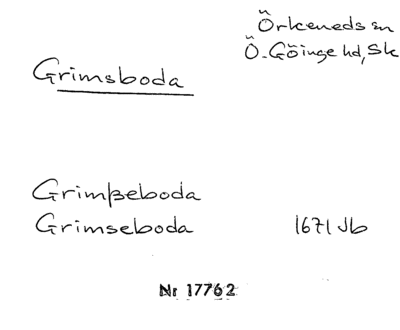 Örkeneds sn
Ö. Göinge hd, Sk
Grimsboda
Grimßeboda
Grimseboda 1671 Jb
Nr 17762